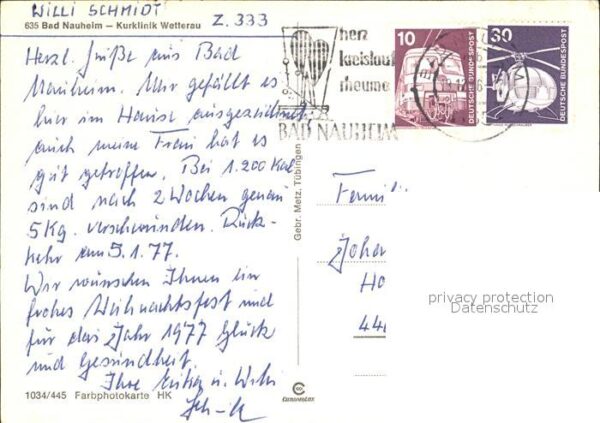 WILLI SCHMIDT Z. 333
635 Bad Nauheim – Kurklinik Wetterau
Herzl. Grüße aus Bad
Nauheim. Mir gefällt es
hier im Hause ausgezeichnet
auch meine Frau hat es
gut getroffen. Bei 1.200 Kal
sind nach 2 Wochen genau
5 Kg. verschwunden. Rück-
kehr am 5.1.77.
Wir wünschen Ihnen ein
frohes Weihnachtsfest und
für das Jahr 1977 Glück
und Gesundheit.
Ihre u. Willi
1034/445 Farbphotokarte HK
Gebr. Metz, Tübingen
herz
kreislauf
rheuma
BAD NAUHEIM
10
DEUTSCHE BUNDESPOST
30
DEUTSCHE BUNDESPOST
Famili
Joha
Ho
privacy protection
Datenschutz